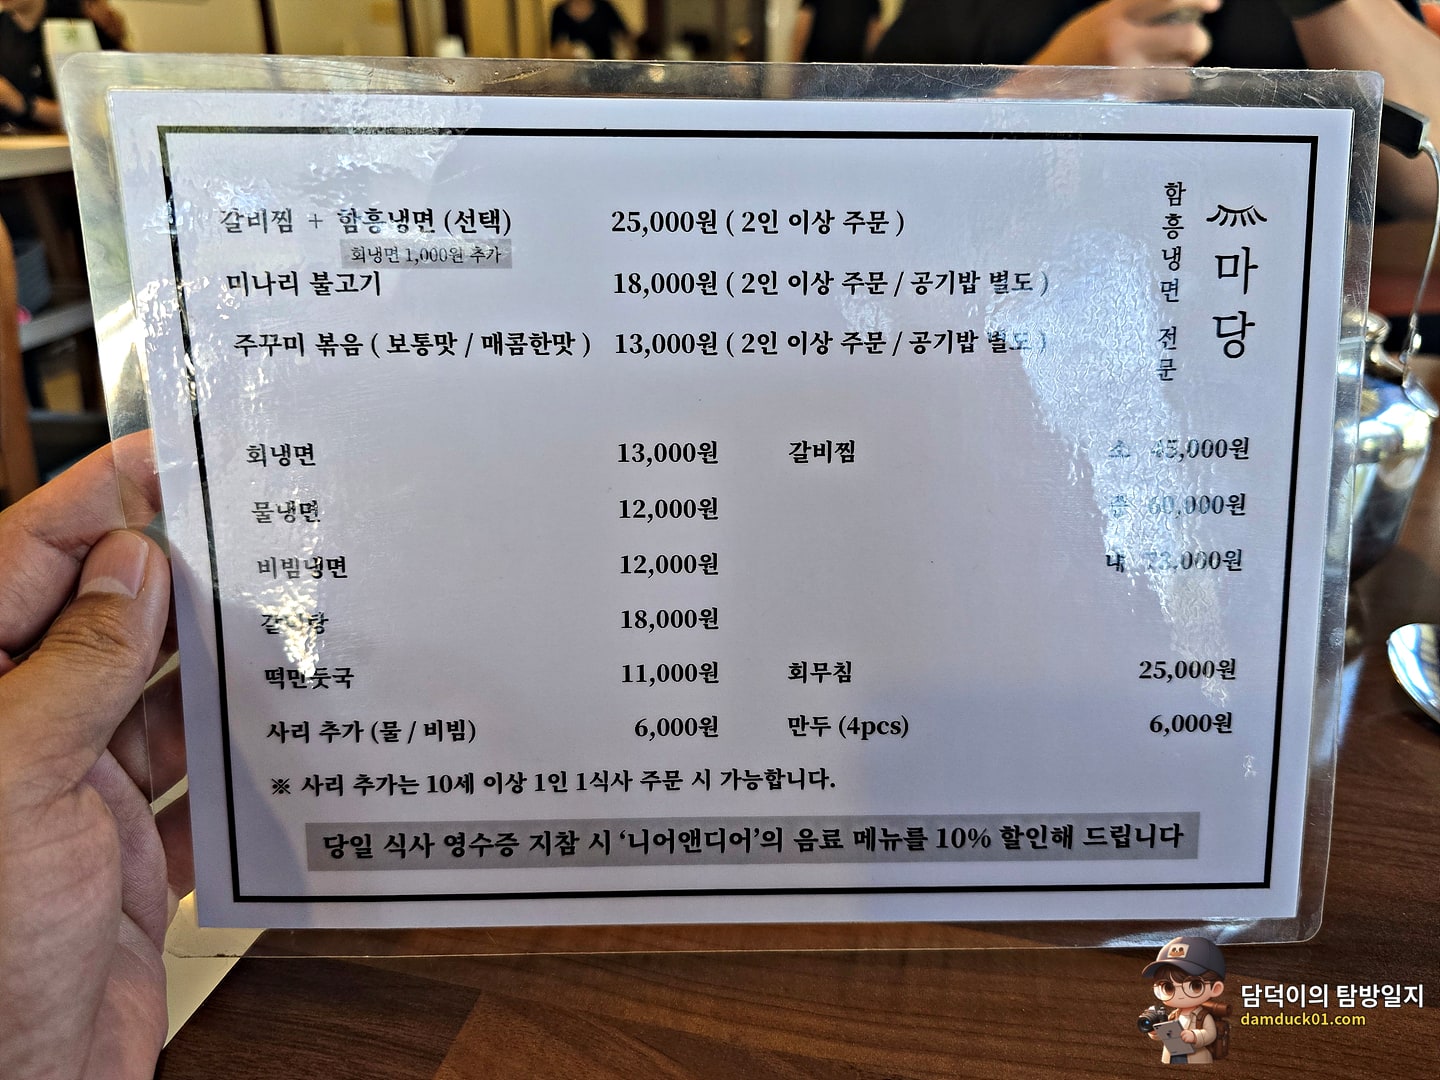 갈비찜 + 함흥냉면 (선택) 25,000원 ( 2인 이상 주문 )
회냉면 1,000원 추가
미나리 불고기 18,000원 ( 2인 이상 주문 / 공기밥 별도 )
주꾸미 볶음 ( 보통맛 / 매콤한맛 ) 13,000원 ( 2인 이상 주문 / 공기밥 별도 )
함흥냉면 전문
마당
회냉면 13,000원 갈비찜 소 45,000원
물냉면 12,000원 중 60,000원
비빔냉면 12,000원
갈비탕 18,000원
떡만둣국 11,000원 회무침 25,000원
사리 추가 (물 / 비빔) 6,000원 만두 (4pcs) 6,000원
※ 사리 추가는 10세 이상 1인 1식사 주문 시 가능합니다.
당일 식사 영수증 지참 시 ‘니어앤디어’의 음료 메뉴를 10% 할인해 드립니다
담덕이의 탐방일지
damduck01.com